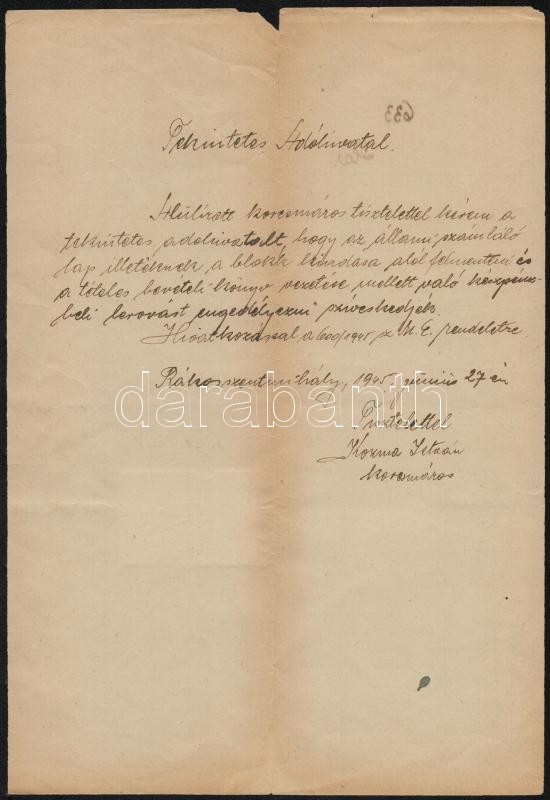 Tekintetes Adóhivatal.
Alulírott korcsmáros tisztelettel kérem a
tekintetes adóhivatalt, hogy az állami számláló
lap illetéknek a blokk kiadása alól felmenteni és
a tételes bevételi könyv vezetése mellett való készpénz-
beli lerovást engedélyezni szíveskedjék.
Hivatkozással a 600/1945 sz M. E. rendeletre.
Rákosszentmihály, 1945 június 27 én
Tisztelettel
Kozma István
korcsmáros
darabanth